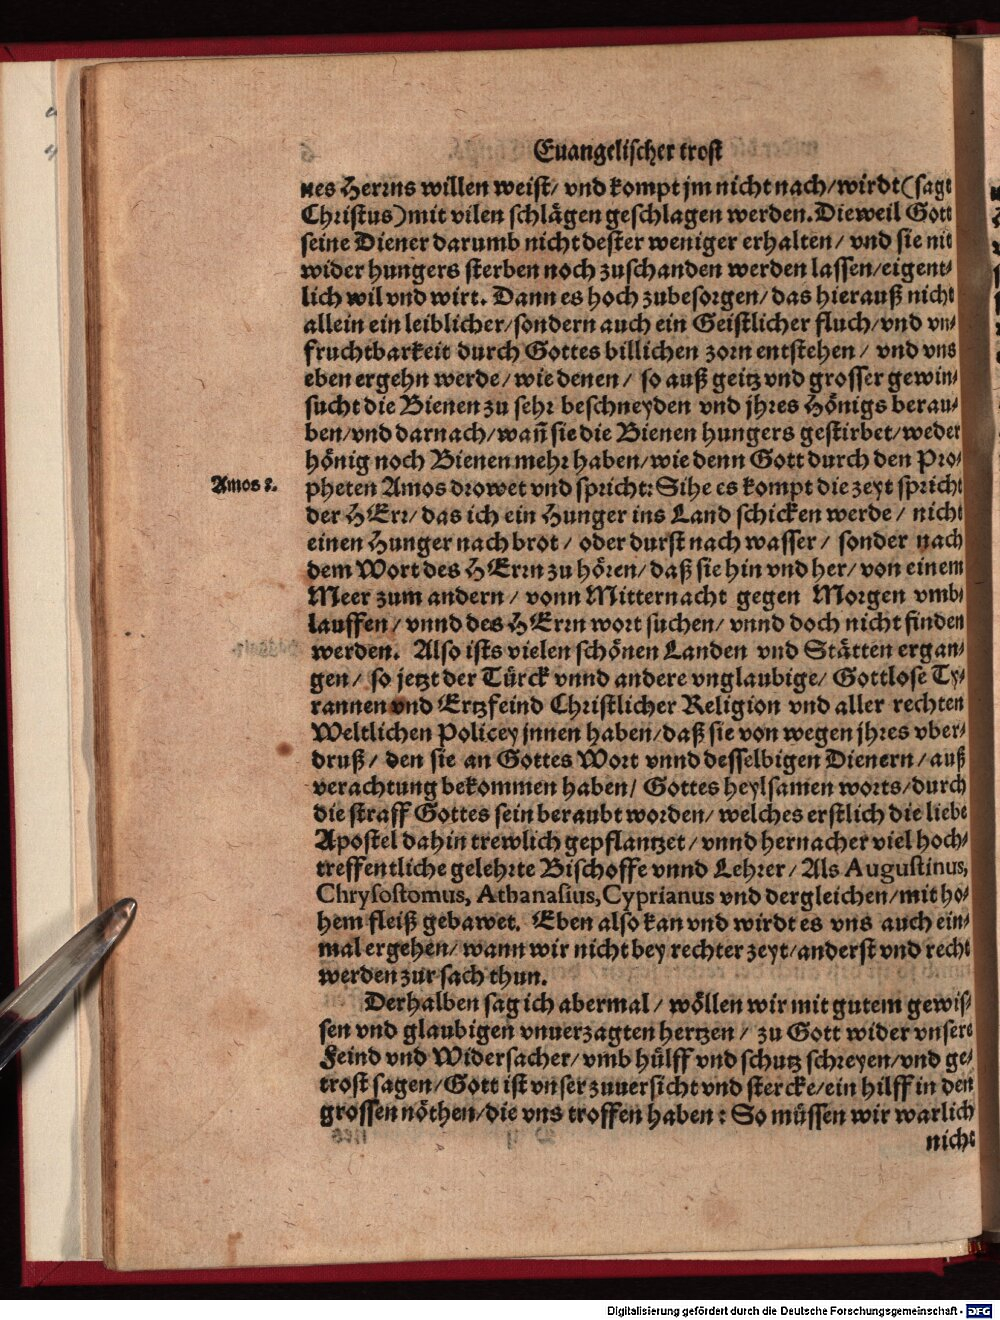 Euangelischer trost
nes Herrns willen weist/ vnd kompt jm nicht nach/wirdt(sagt
Christus)mit vilen schlägen geschlagen werden. Dieweil Gott
seine Diener darumb nicht dester weniger erhalten/ vnd sie nit
wider hungers sterben noch zuschanden werden lassen/eigent⸗
lich wil vnd wirt. Dann es hoch zubesorgen/ das hierauß nicht
allein ein leiblicher/sondern auch ein Geistlicher fluch/vnd vn⸗
fruchtbarkeit durch Gottes billichen zorn entstehen/ vnd vns
eben ergehn werde/ wie denen/ so auß geitz vnd grosser gewin⸗
sucht die Bienen zu sehr beschneyden vnd jhres Hönigs berau⸗
ben/vnd darnach/wañ sie die Bienen hungers gestirbet/weder
hönig noch Bienen mehr haben/wie denn Gott durch den Pro⸗
Amos 8.
pheten Amos drowet vnd spricht: Sihe es kompt die zeyt spricht
der HErr/ das ich ein Hunger ins Land schicken werde/ nicht
einen Hunger nach brot/ oder durst nach wasser/ sonder nach
dem Wort des HErrn zu hören/ daß sie hin vnd her/ von einem
Meer zum andern/ vonn Mitternacht gegen Morgen vmb⸗
lauffen/ vnnd des HErrn wort suchen/ vnnd doch nicht finden
werden. Also ists vielen schönen Landen vnd Stätten ergan⸗
gen/ so jetzt der Türck vnnd andere vnglaubige/ Gottlose Ty⸗
rannen vnd Ertzfeind Christlicher Religion vnd aller rechten
Weltlichen Policey jnnen haben/daß sie von wegen jhres vber⸗
druß/ den sie an Gottes Wort vnnd desselbigen Dienern/ auß
verachtung bekommen haben/ Gottes heylsamen worts/durch
die straff Gottes sein beraubt worden/ welches erstlich die liebe
Apostel dahin trewlich gepflantzet/ vnnd hernacher viel hoch⸗
treffentliche gelehrte Bischoffe vnnd Lehrer/ Als Augustinus,
Chrysostomus, Athanasius, Cyprianus vnd dergleichen/mit ho⸗
hem fleiß gebawet. Eben also kan vnd wirdt es vns auch ein⸗
mal ergehen/ wann wir nicht bey rechter zeyt/anderst vnd recht
werden zur sach thun.
Derhalben sag ich abermal/ wöllen wir mit gutem gewis⸗
sen vnd glaubigen vnuerzagten hertzen/ zu Gott wider vnsere
Feind vnd Widersacher/ vmb hülff vnd schutz schreyen/vnd ge⸗
trost sagen/Gott ist vnser zuuersicht vnd stercke/ein hilff in den
grossen nöthen/die vns troffen haben: So müssen wir warlich
nicht
Digitalisierung gefördert durch die Deutsche Forschungsgemeinschaft - DFG